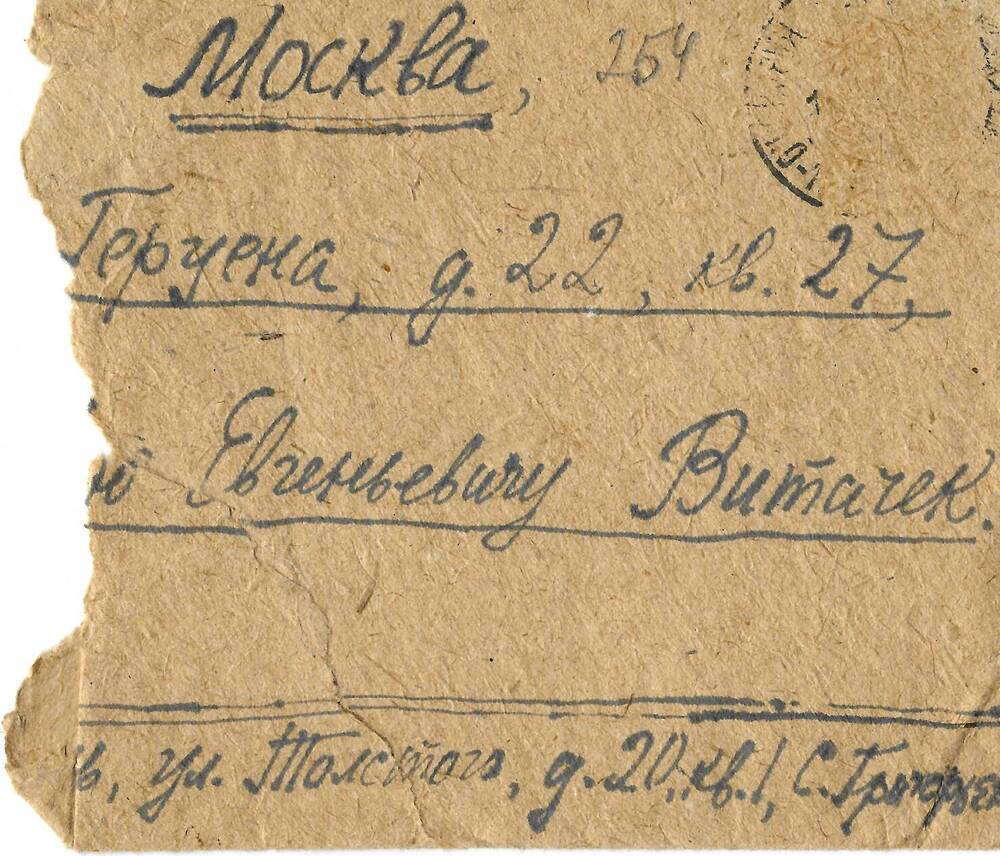 Москва, 254
Герцена, д. 22, кв. 27,
ю Евгеньевичу Витачек.
в, ул. Толстого, д. 20, кв. 1, С. Григорьев